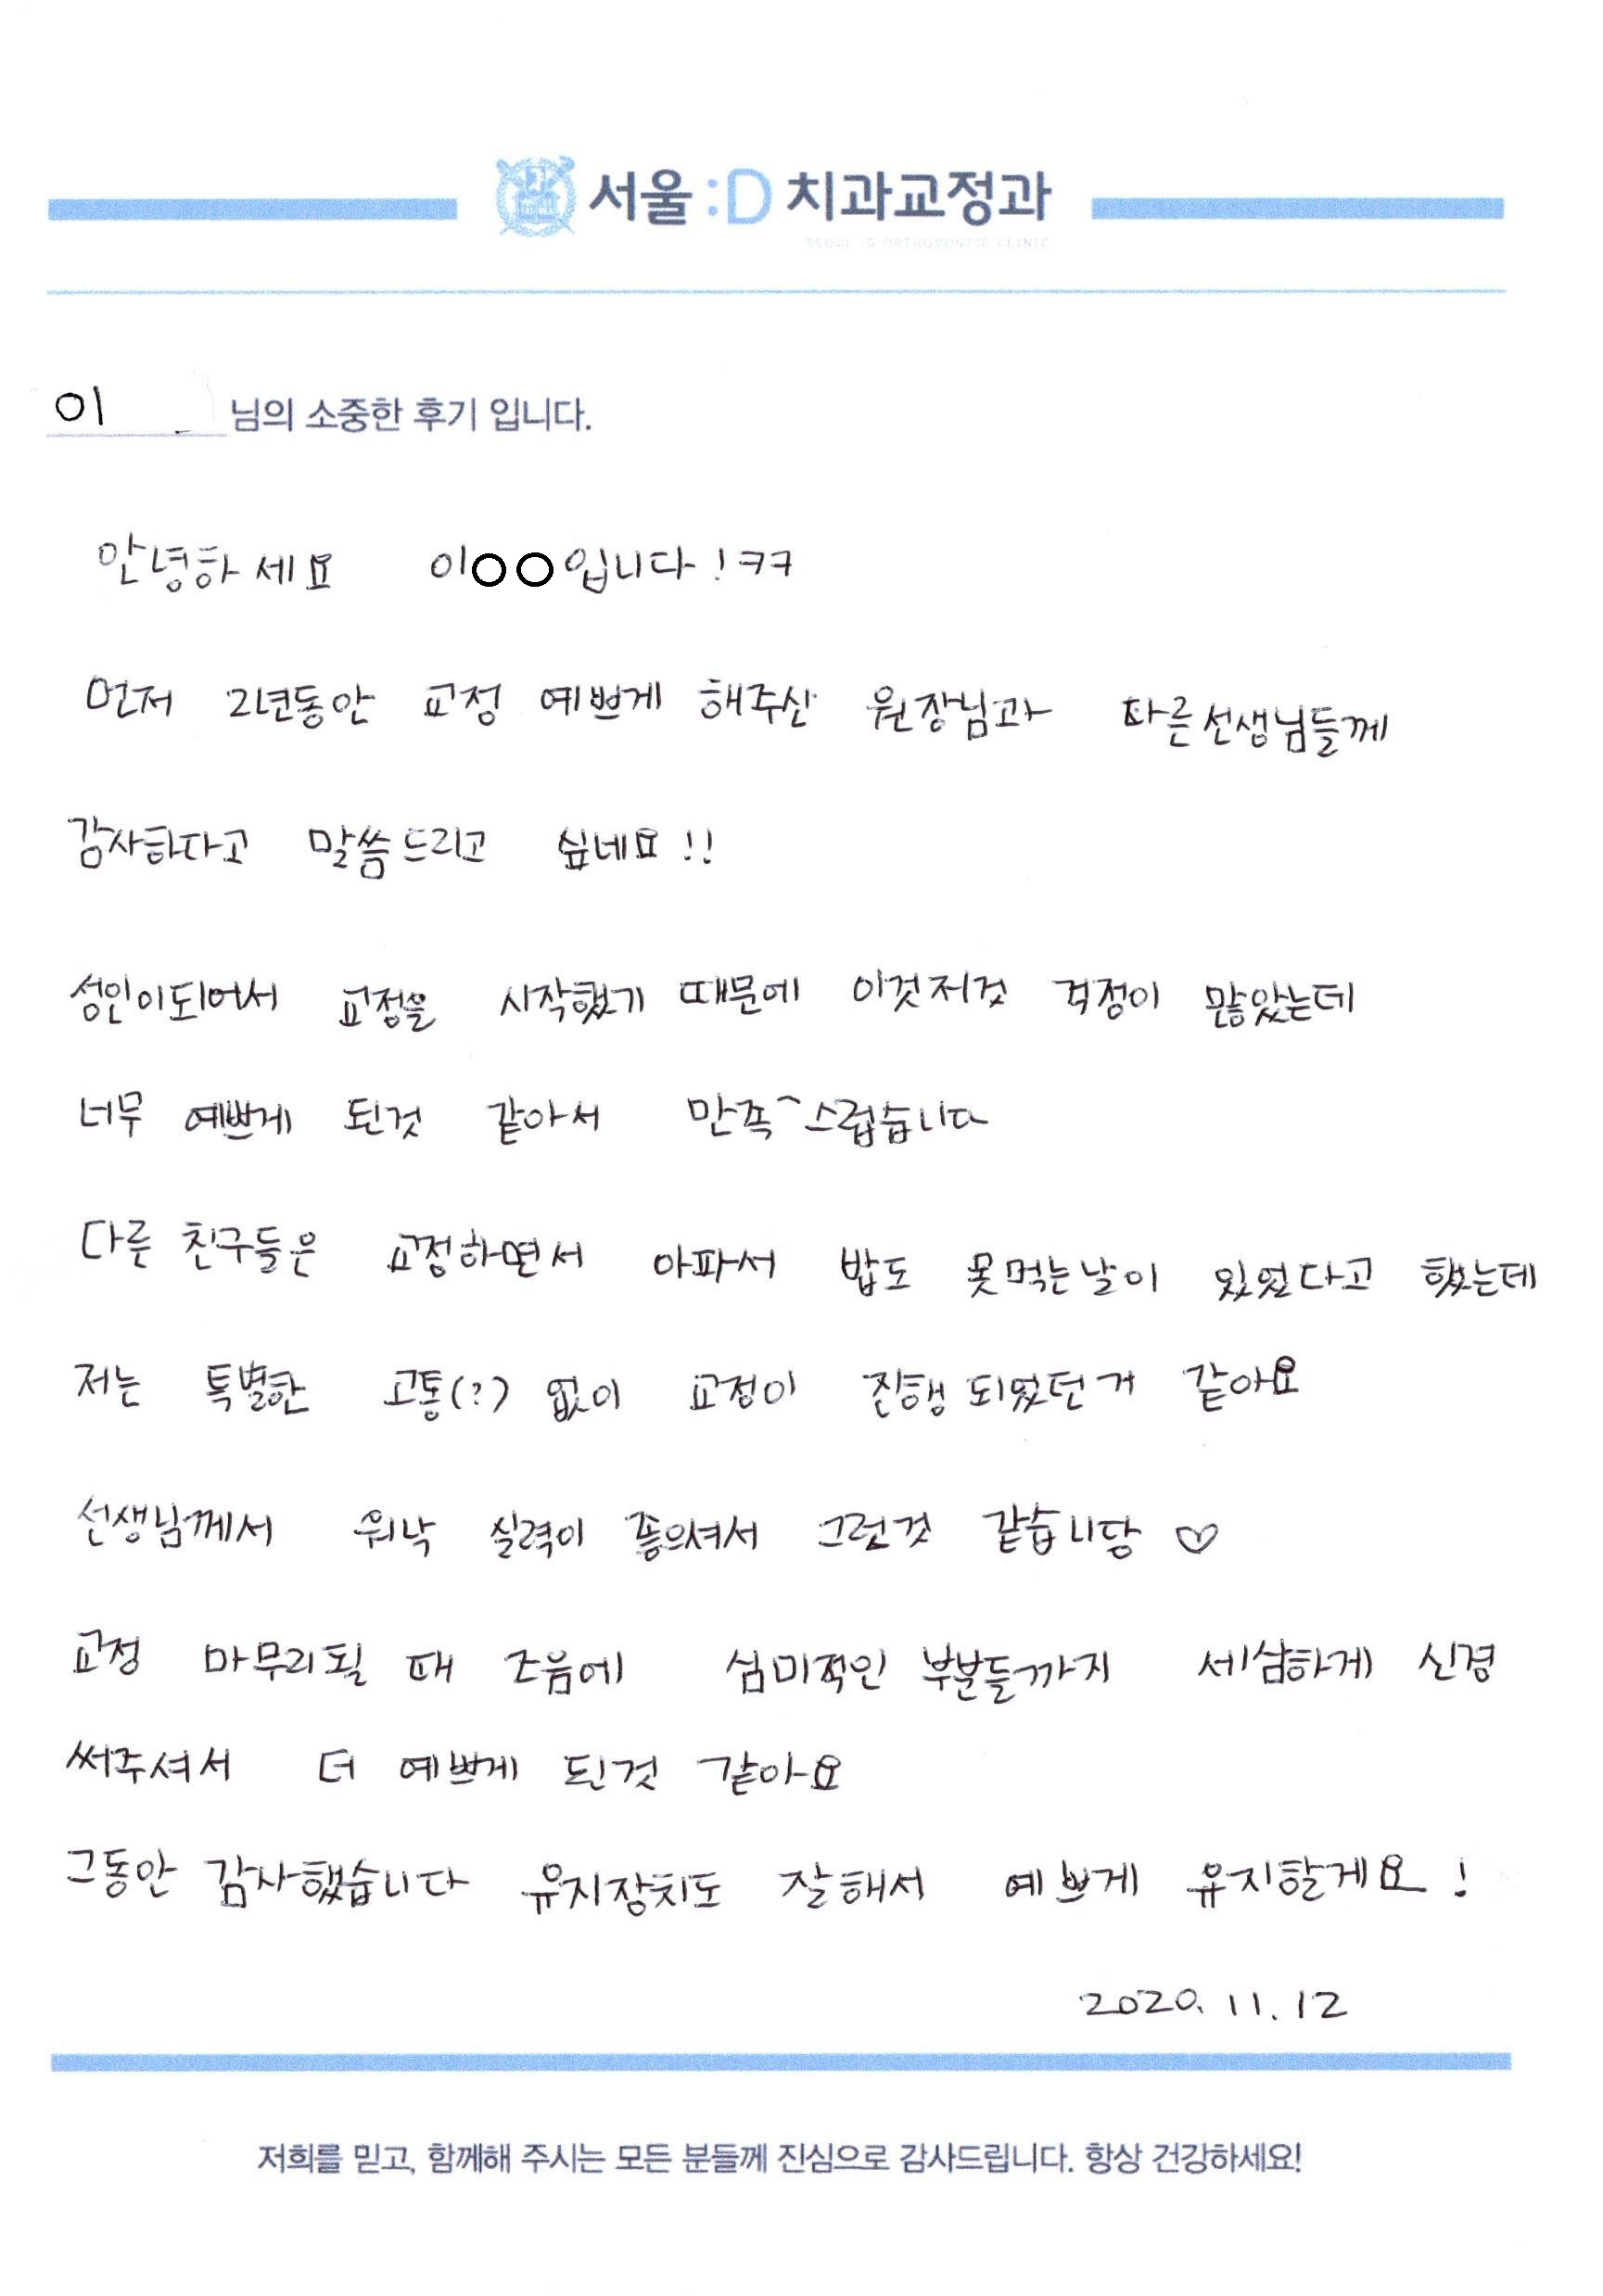 서울:D 치과교정과
SEOUL :D ORTHODONTIC CLINIC
이 님의 소중한 후기 입니다.
안녕하세요 이○○입니다!ㅋㅋ
먼저 2년동안 교정 예쁘게 해주신 원장님과 다른선생님들께
감사하다고 말씀드리고 싶네요!!
성인이되어서 교정을 시작했기 때문에 이것저것 걱정이 많았는데
너무 예쁘게 된것 같아서 만족~스럽습니다
다른 친구들은 교정하면서 아파서 밥도 못먹는날이 있었다고 했는데
저는 특별한 고통(?) 없이 교정이 진행되었던거 같아요
선생님께서 워낙 실력이 좋으셔서 그런것 같습니당 ♡
교정 마무리될 때 즈음에 심미적인 부분들까지 세심하게 신경
써주셔서 더 예쁘게 된것 같아요
그동안 감사했습니다 유지장치도 잘해서 예쁘게 유지할게요!
2020.11.12
저희를 믿고, 함께해 주시는 모든 분들께 진심으로 감사드립니다. 항상 건강하세요!